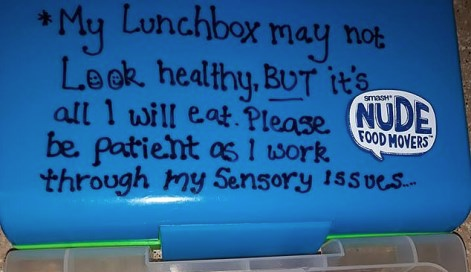 *My Lunchbox may not
Look healthy, BUT it's
all I will eat. Please
be patient as I work
through my Sensory Issues...
smash
NUDE
FOOD MOVERS